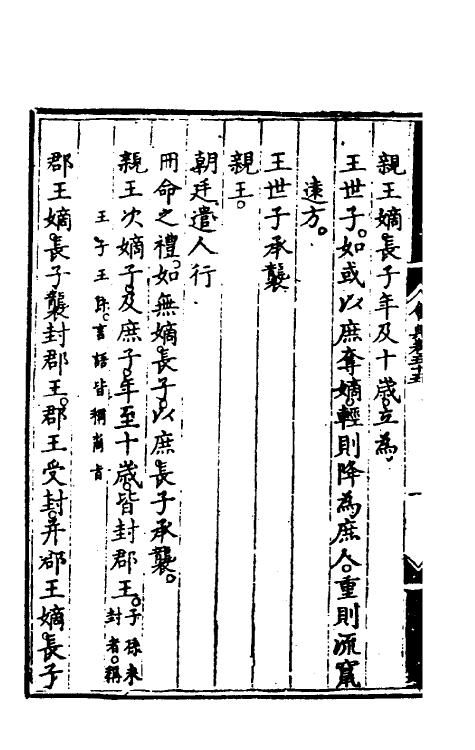 親王嫡長子年及十歲立為
王世子。如或以庶奪嫡。輕則降為庶人。重則流竄
遠方。
王世子承襲
親王。
朝廷遣人行
冊命之禮。如無嫡長子。以庶長子承襲。
親王次嫡子。及庶子。年至十歲。皆封郡王。子孫未
封者。稱
王子王孫。言語皆稱裔旨
郡王嫡長子襲封郡王。郡王受封。并郡王嫡長子